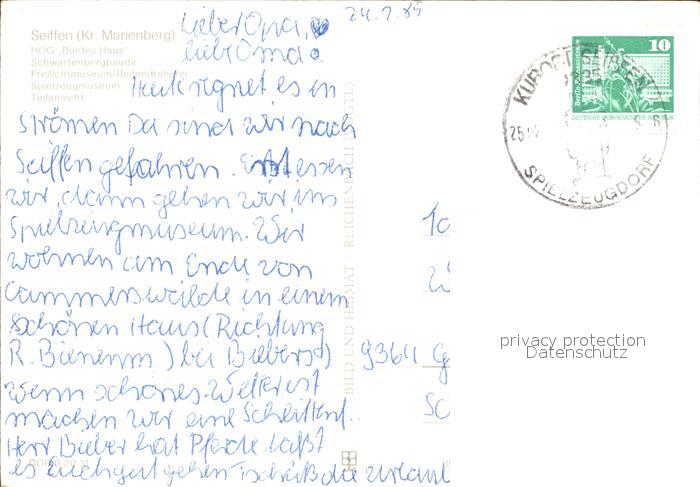 Seiffen (Kr. Marienberg)
HOG „Buntes Haus"
Schwartenbergbaude
Freilichtmuseum/Reifendreherei
Spielzeugmuseum
Teilansicht
24.7.85
Lieber Opa,
liebe Oma.
Heut regnet es in
strömen Da sind wir nach
Seiffen gefahren. Erst essen
wir, dann gehen wir ins
Spielzeugmuseum. Wir
wohnen am Ende von
Cämmerswalde in einem
schönen Haus (Richtung
R. Bienenm) bei Biebers)
wenn schönes Wetter ist
machen wir eine
Herr Bieber hat Pferde. Laßt
es Euch gut gehen Tschüß die Urlaub
BILD UND HEIMAT · REICHENBACH (VOGTL)
10
KURORT SEIFFEN
SPIELZEUGDORF
DEUTSCHE DEMOKRATISCHE REPUBLIK
10
9364 G
Sc
privacy protection
Datenschutz